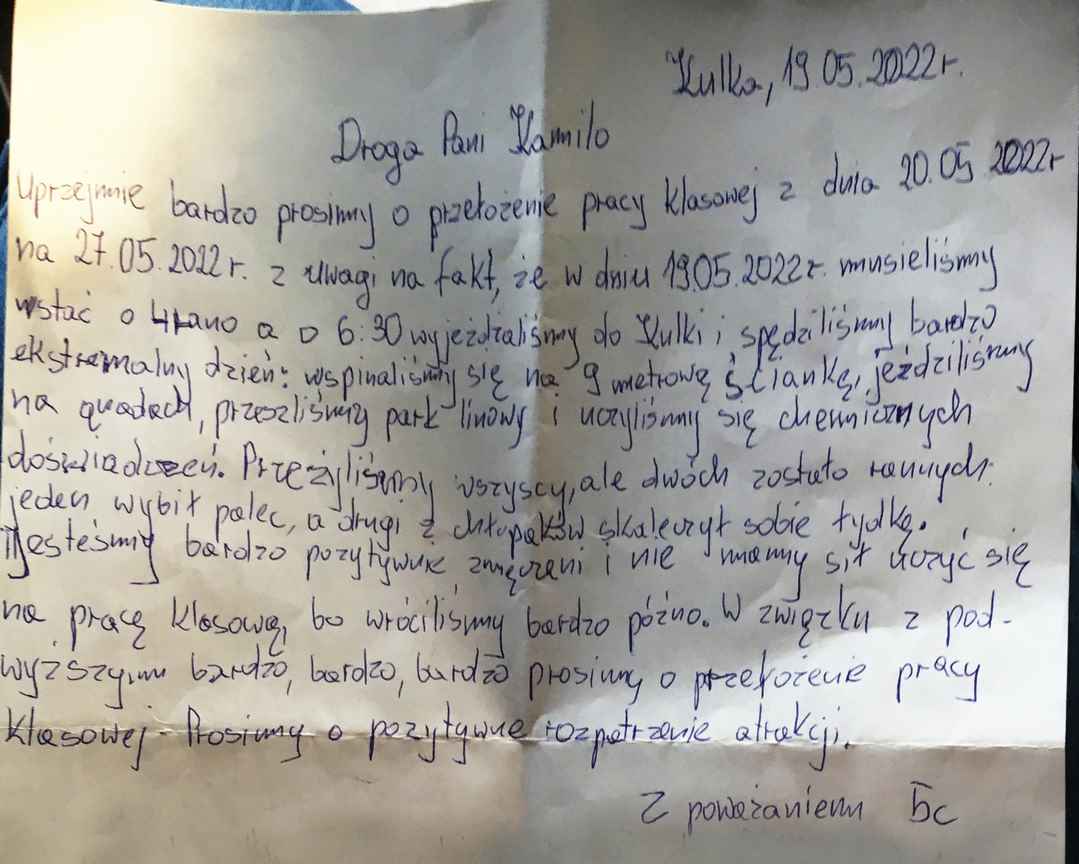 Kulka, 19.05.2022r.
Droga Pani Kamilo
Uprzejmie bardzo prosimy o przełożenie pracy klasowej z dnia 20.05 2022r
na 27.05.2022r. z uwagi na fakt, że w dniu 19.05.2022r. musieliśmy
wstać o 4 rano a o 6:30 wyjeżdżaliśmy do Kulki i spędziliśmy bardzo
ekstremalny dzień: wspinaliśmy się na 9 metrową ściankę, jeździliśmy
na quadach, przeszliśmy park linowy i uczyliśmy się chemicznych
doświadczeń. Przeżyliśmy wszyscy, ale dwóch zostało rannych:
jeden wybił palec, a drugi z chłopaków skaleczył sobie łydkę.
Jesteśmy bardzo pozytywnie zmęczeni i nie mamy sił uczyć się
na pracę klasową, bo wróciliśmy bardzo późno. W związku z pod-
wyższymi bardzo, bardzo, bardzo prosimy o przełożenie pracy
klasowej. Prosimy o pozytywne rozpatrzenie atrakcji.
Z poważaniem 5c